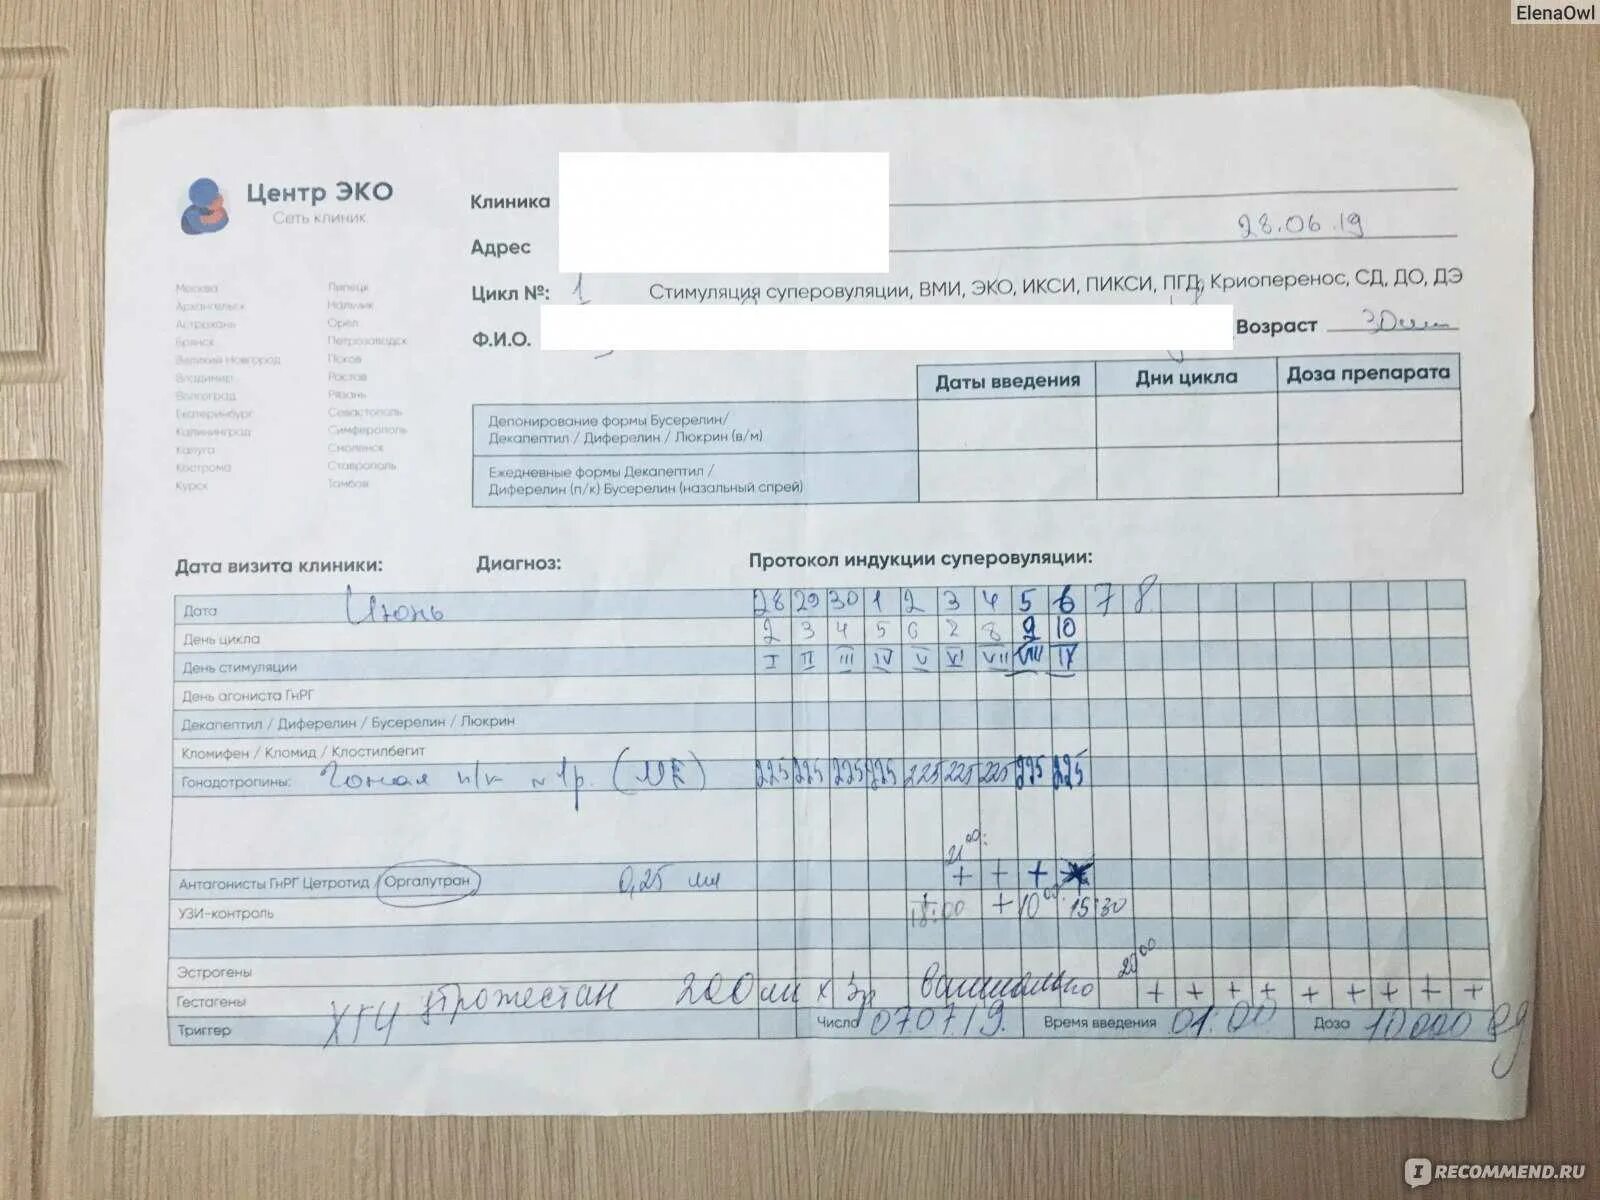 ElenaOwl
Центр ЭКО
Сеть клиник
Москва Липецк
Архангельск Нальчик
Астрахань Орел
Брянск Петрозаводск
Великий Новгород Псков
Владимир Ростов
Волгоград Рязань
Екатеринбург Севастополь
Калининград Симферополь
Калуга Смоленск
Кострома Ставрополь
Курск Тамбов
Клиника
28.06.19
Адрес
Цикл №: 1 Стимуляция суперовуляции, ВМИ, ЭКО, ИКСИ, ПИКСИ, ПГД, Криоперенос, СД, ДО, ДЭ
Ф.И.О. Возраст 30
Даты введения Дни цикла Доза препарата
Депонирование формы Бусерелин/
Декапептил / Диферелин / Люкрин (в/м)
Ежедневные формы Декапептил /
Диферелин (п/к) Бусерелин (назальный спрей)
Дата визита клиники: Диагноз: Протокол индукции суперовуляции:
Дата Июнь 28 29 30 1 2 3 4 5 6 7 8
День цикла 2 3 4 5 6 7 8 9 10
День стимуляции I II III IV V VI VII VIII IX
День агониста ГнРГ
Декапептил / Диферелин / Бусерелин / Люкрин
Кломифен / Кломид / Клостилбегит
Гонадотропины: Гонал п/к 225 225 225 225 225 225 225 225 225
21 00:
Антагонисты ГнРГ Цетротид / Оргалутран 0,25 мл + + +
УЗИ-контроль 18:00 + 10 00 15:30
Эстрогены
20 00
Гестагены Утрожестан 200 мг х 3р вагинально + + + + + + + + +
Триггер ХГЧ Число 07.07.19. Время введения 01:00 Доза 10 000 ед
IRECOMMEND.RU